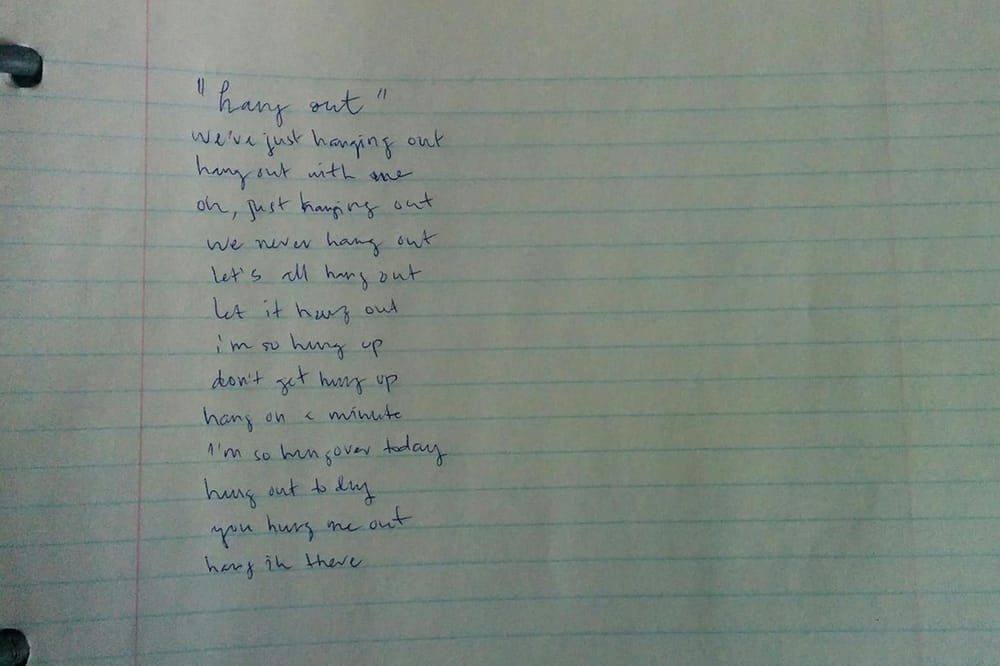 "hang out"
we're just hanging out
hang out with me
oh, just hanging out
we never hang out
let's all hang out
let it hang out
i'm so hung up
don't get hung up
hang on a minute
I'm so hungover today
hung out to dry
you hung me out
hang in there